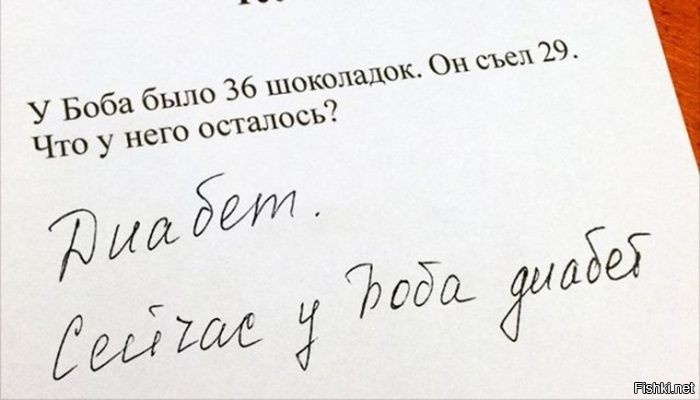 У Боба было 36 шоколадок. Он съел 29.
Что у него осталось?
Диабет.
Сейчас у Боба диабет
Fishki.net